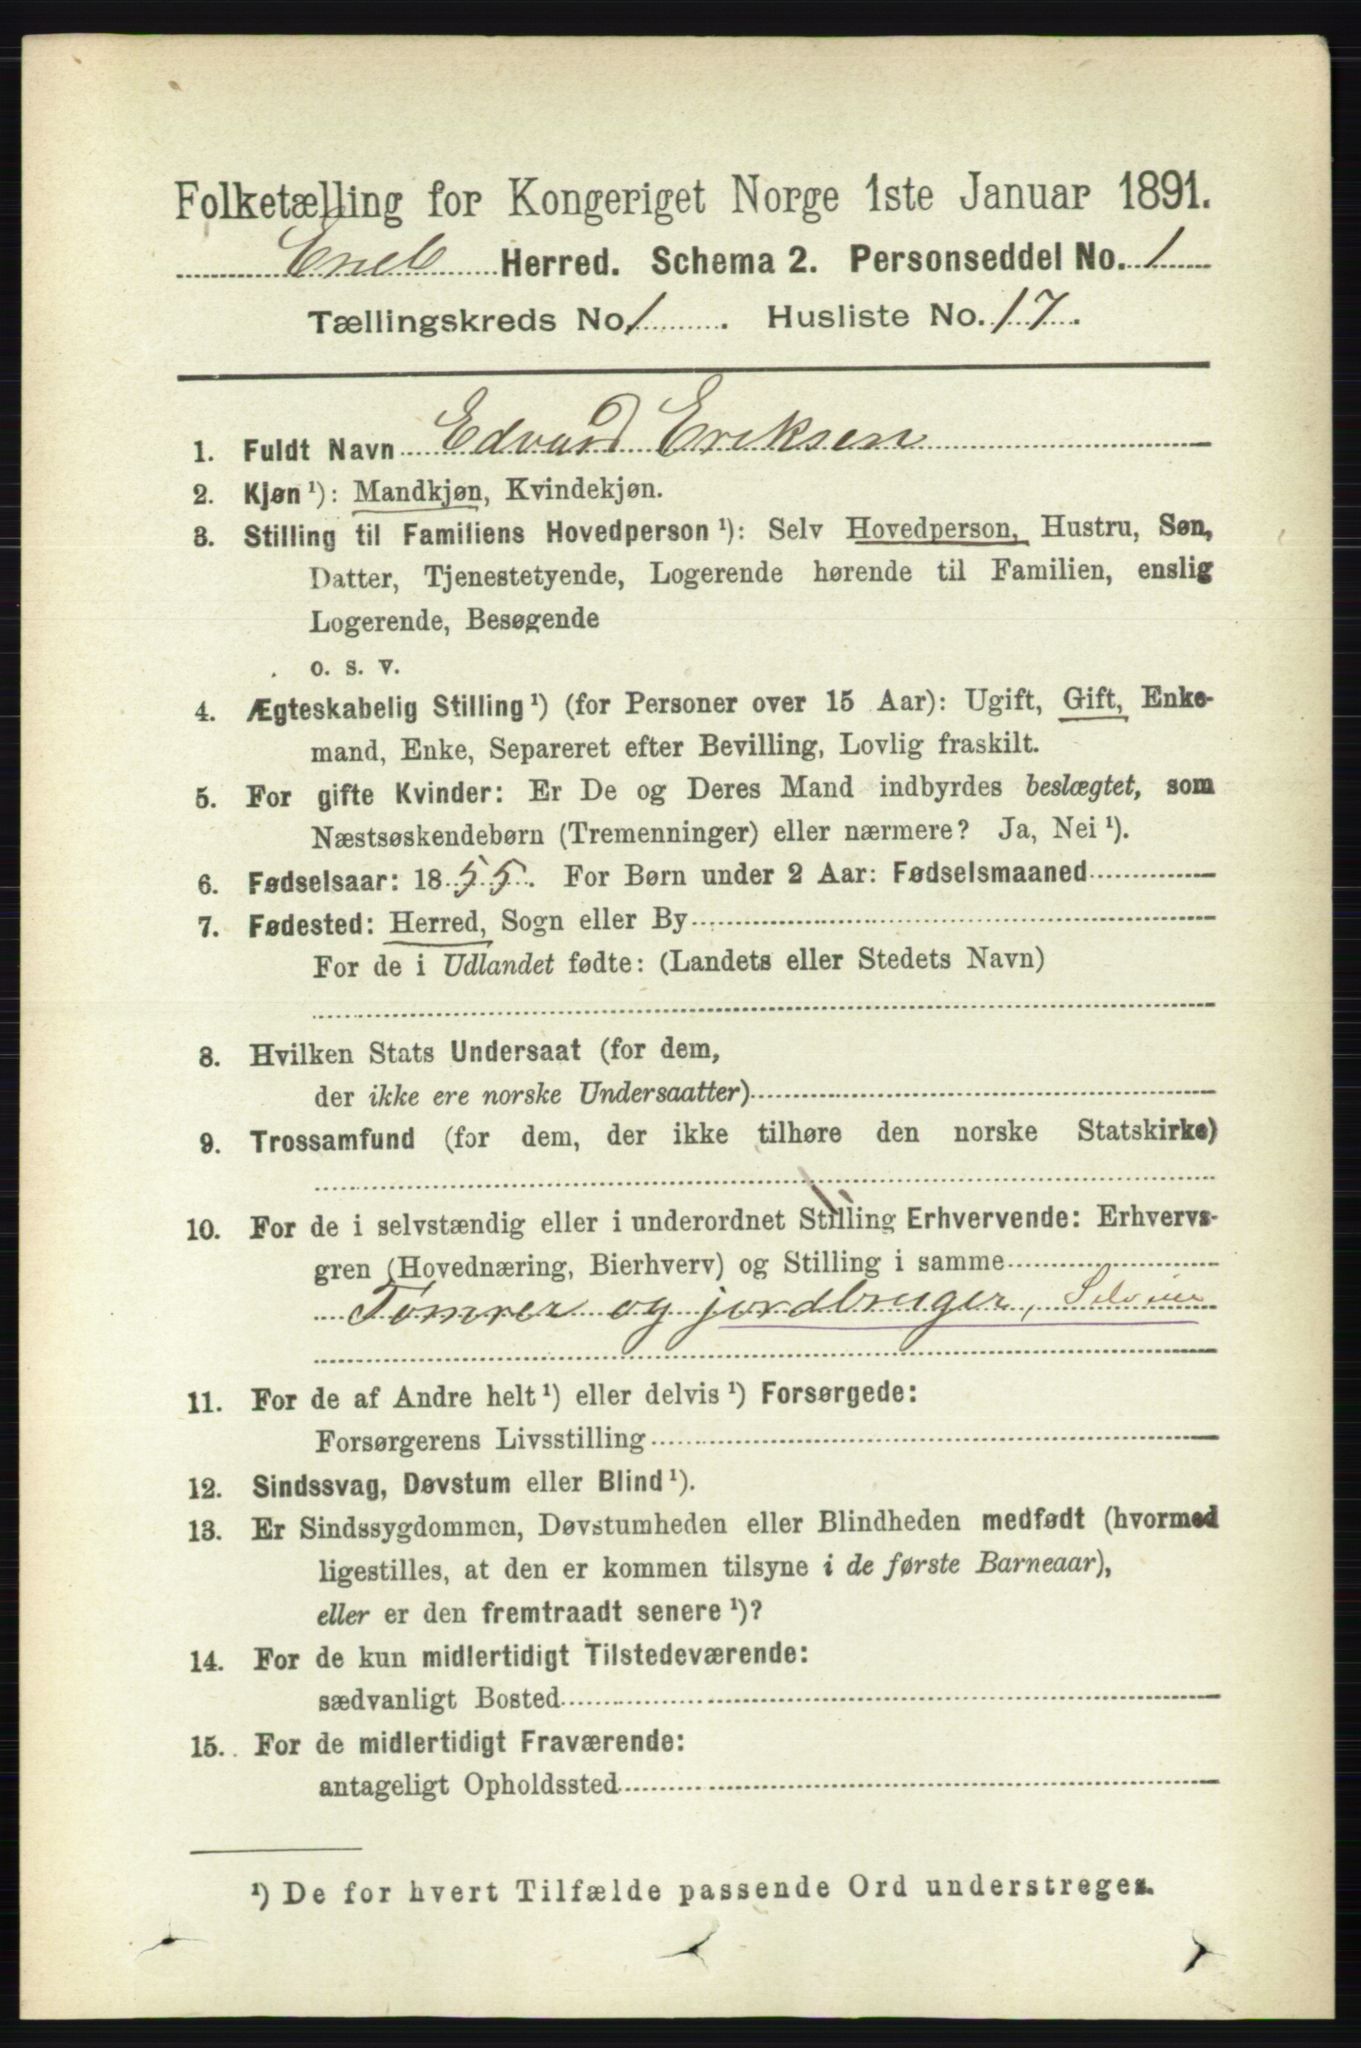 Folketælling for Kongeriget Norge 1ste Januar 1891.
Eneb Herred. Schema 2. Personseddel No. 1
Tællingskreds No 1. Husliste No. 17.
1. Fuldt Navn Edvard Eriksen
2. Kjøn ¹): Mandkjøn, Kvindekjøn.
3. Stilling til Familiens Hovedperson ¹): Selv Hovedperson, Hustru, Søn,
Datter, Tjenestetyende, Logerende hørende til Familien, enslig
Logerende, Besøgende
o. s. v.
4. Ægteskabelig Stilling ¹) (for Personer over 15 Aar): Ugift, Gift, Enke-
mand, Enke, Separeret efter Bevilling, Lovlig fraskilt.
5. For gifte Kvinder: Er De og Deres Mand indbyrdes beslægtet, som
Næstsøskendebørn (Tremenninger) eller nærmere? Ja, Nei ¹).
6. Fødselsaar: 1855. For Børn under 2 Aar: Fødselsmaaned
7. Fødested: Herred, Sogn eller By
For de i Udlandet fødte: (Landets eller Stedets Navn)
8. Hvilken Stats Undersaat (for dem,
der ikke ere norske Undersaatter)
9. Trossamfund (for dem, der ikke tilhøre den norske Statskirke)
10. For de i selvstændig eller i underordnet Stilling Erhvervende: Erhvervs-
gren (Hovednæring, Bierhverv) og Stilling i samme
Tømrer og jordbruger, Selveier
11. For de af Andre helt ¹) eller delvis ¹) Forsørgede:
Forsørgerens Livsstilling
12. Sindssvag, Døvstum eller Blind ¹).
13. Er Sindssygdommen, Døvstumheden eller Blindheden medfødt (hvormed
ligestilles, at den er kommen tilsyne i de første Barneaar),
eller er den fremtraadt senere ¹)?
14. For de kun midlertidigt Tilstedeværende:
sædvanligt Bosted
15. For de midlertidigt Fraværende:
antageligt Opholdssted
¹) De for hvert Tilfælde passende Ord understreges.